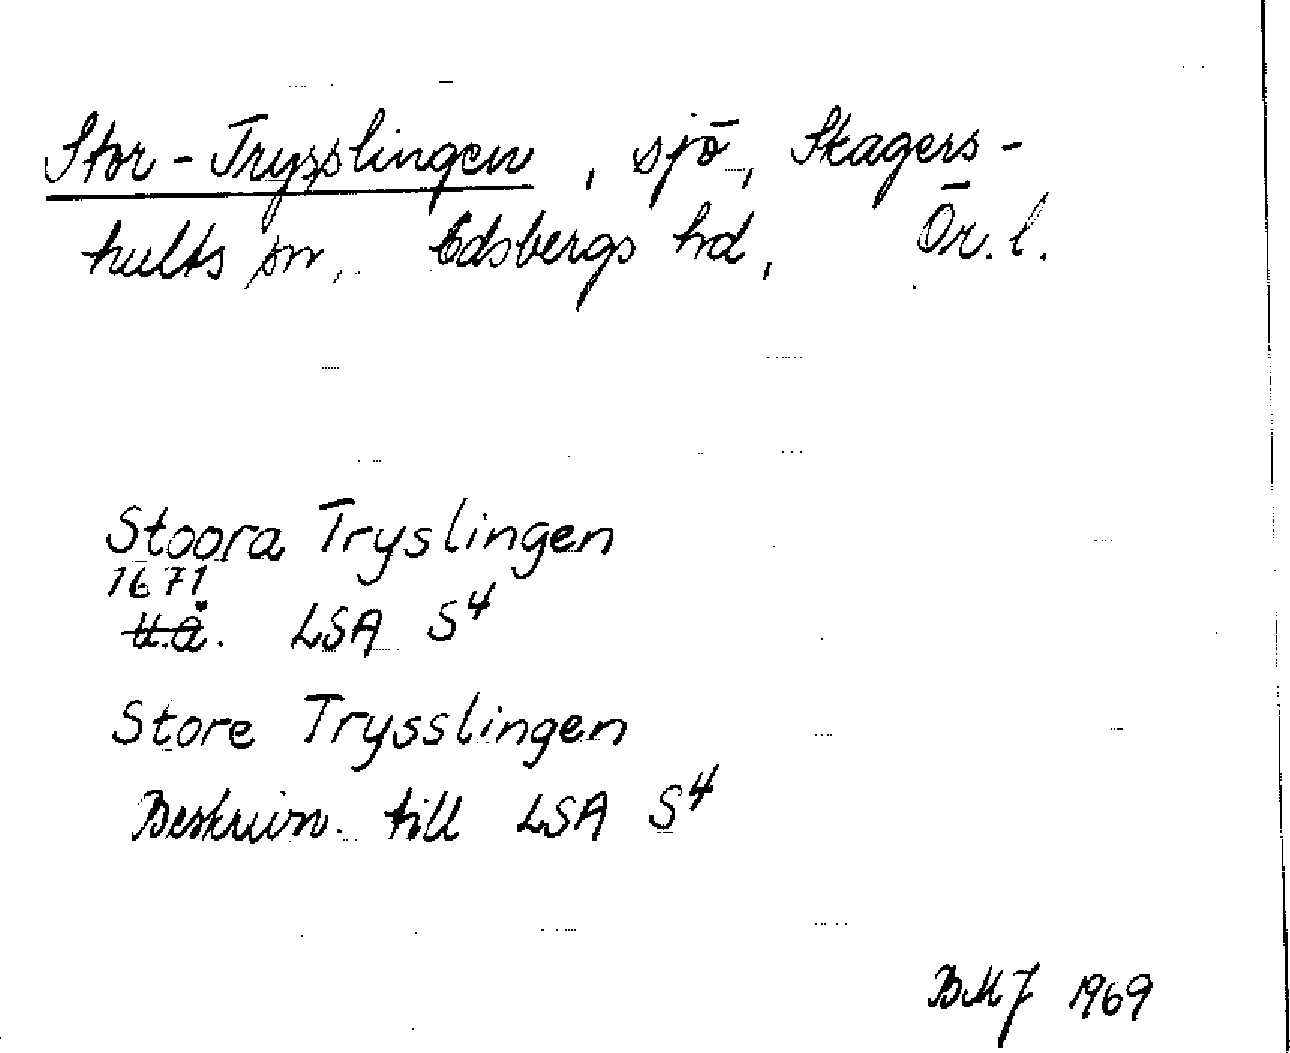 Stor-Trysslingen, sjö, Skagers-
hults sn, Edsbergs hd, Ör. l.
Stoora Tryslingen
1671
u.å. LSA S4
Store Trysslingen
Beskrivn. till LSA S4
BMJ 1969